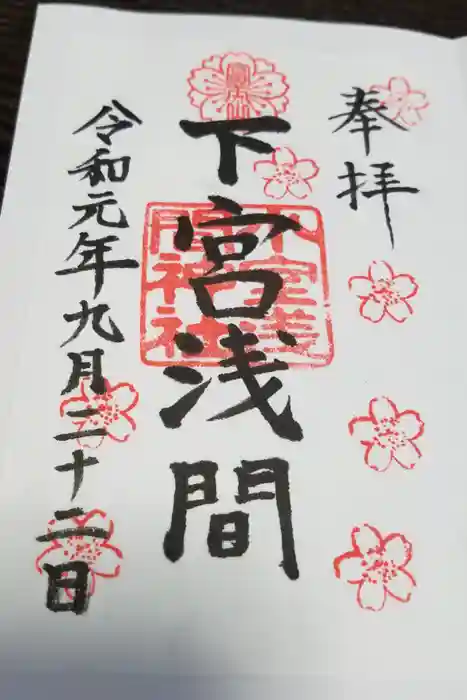 奉拝
下宮浅間
下宮浅間神社
令和元年九月二十二日